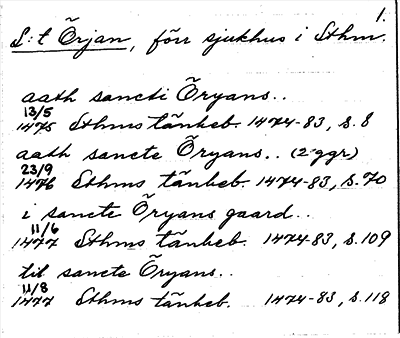 1.
S:t Örjan, förr sjukhus i Sthm.
aath sancti Öryans..
13/5
1475 Sthms tänkeb. 1474-83, s. 8
aath sancte Öryans.. (2 ggr)
23/9
1476 Sthms tänkeb. 1474-83, s. 70
i sancte Öryans gaard..
11/6
1477 Sthms tänkeb. 1474-83, s. 109
til sancte Öryans..
11/8
1477 Sthms tänkeb. 1474-83, s. 118